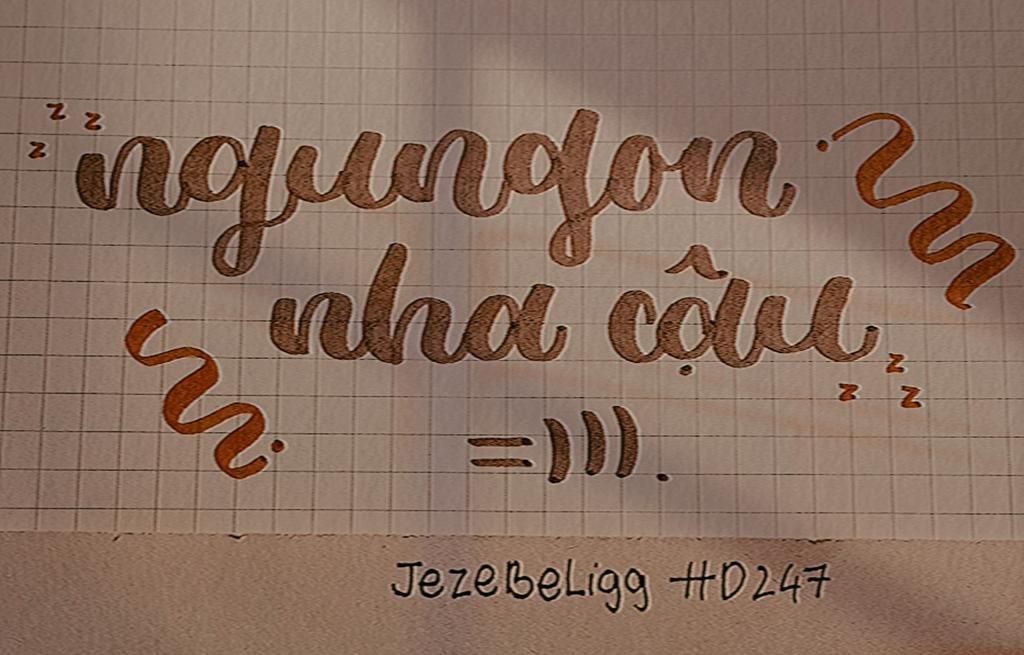 z z
z
ngungon
nha cậu
z
z z
=))).
JezeBeLigg #D247